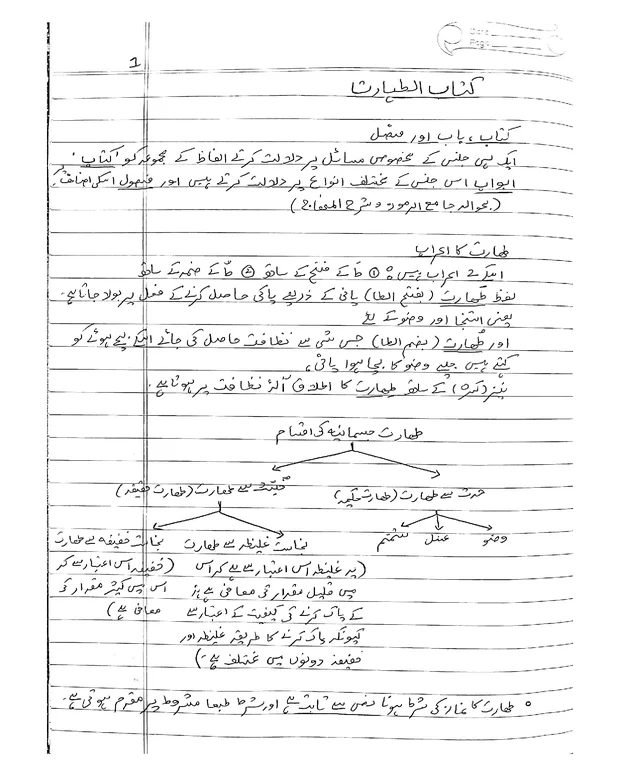 Date
Page
1
کتاب الطہارت
کتاب، باب اور فصل
ایک ہی جنس کے مخصوص مسائل پر دلالت کرتے الفاظ کے مجموعہ کو 'کتاب'،
ابواب اس جنس کے مختلف انواع پر دلالت کرتے ہیں اور فصول اسکی اصناف پر
(بحوالہ جامع الرموز و شرح
طھارت کا اعراب
اسکے اعراب ہیں: ① طَ کے فتحہ کے ساتھ ② طُ کے ضمہ کے ساتھ
لفظ طَھارت (بفتح الطا) پانی کے ذریعے پاکی حاصل کرنے کے فعل پر بولا جاتا ہے۔
یعنی استنجا اور وضو کے لئے
اور طُھارت (بضم الطا) جس شی سے نظافت حاصل کی جائے اسکے بچے ہوئے کو
کہتے ہیں جیسے وضو کا بچا ہوا پانی،
نیز (کسرہ) کے ساتھ طِھارت کا اطلاق آلۂ نظافت پر ہوتا ہے۔
طھارت جسمانیہ کی اقسام
حدث سے طھارت (طھارت حکمیہ)
خبث سے طھارت (طھارت حقیقیہ)
وضو غسل تیمم
نجاست غلیظہ سے طھارت
(یہ غلیظہ اس اعتبار سے ہے کہ اس
میں قلیل مقدار ہی معافی ہے نہ
کے پاک کرنے کی کیفیت کے اعتبار سے
کیونکہ پاک کرنے کا طریقہ غلیظہ اور
خفیفہ دونوں میں مختلف ہے۔)
نجاست خفیفہ سے طھارت
(خفیفہ اس اعتبار سے کہ
اس میں کثیر مقدار کی
معافی ہے)
° طھارت کا نماز کی شرط ہونا نص سے ثابت ہے اور شرط طبعا مشروط پر مقدم ہوتی ہے۔